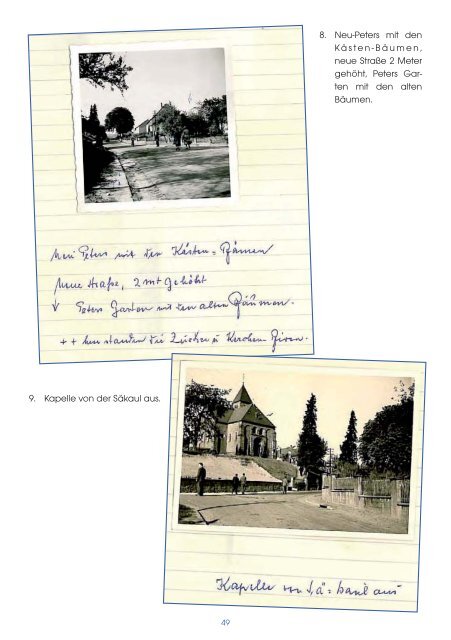 8. Neu-Peters mit den
Kästen-Bäumen,
neue Straße 2 Meter
gehöht, Peters Gar-
ten mit den alten
Bäumen.
Neu Peters mit den Kästen=Bäumen
Neue Straße, 2 mt gehöht
↓ Peters Garten mit den alten Bäumen.
++ hier standen die u Kirchen
9. Kapelle von der Säkaul aus.
Kapelle von Sä=kaul aus
49